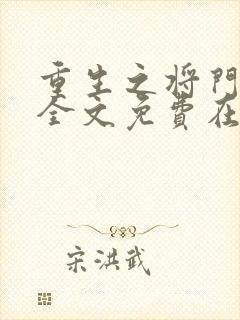 重生之将門
全文免費在
宋洪武